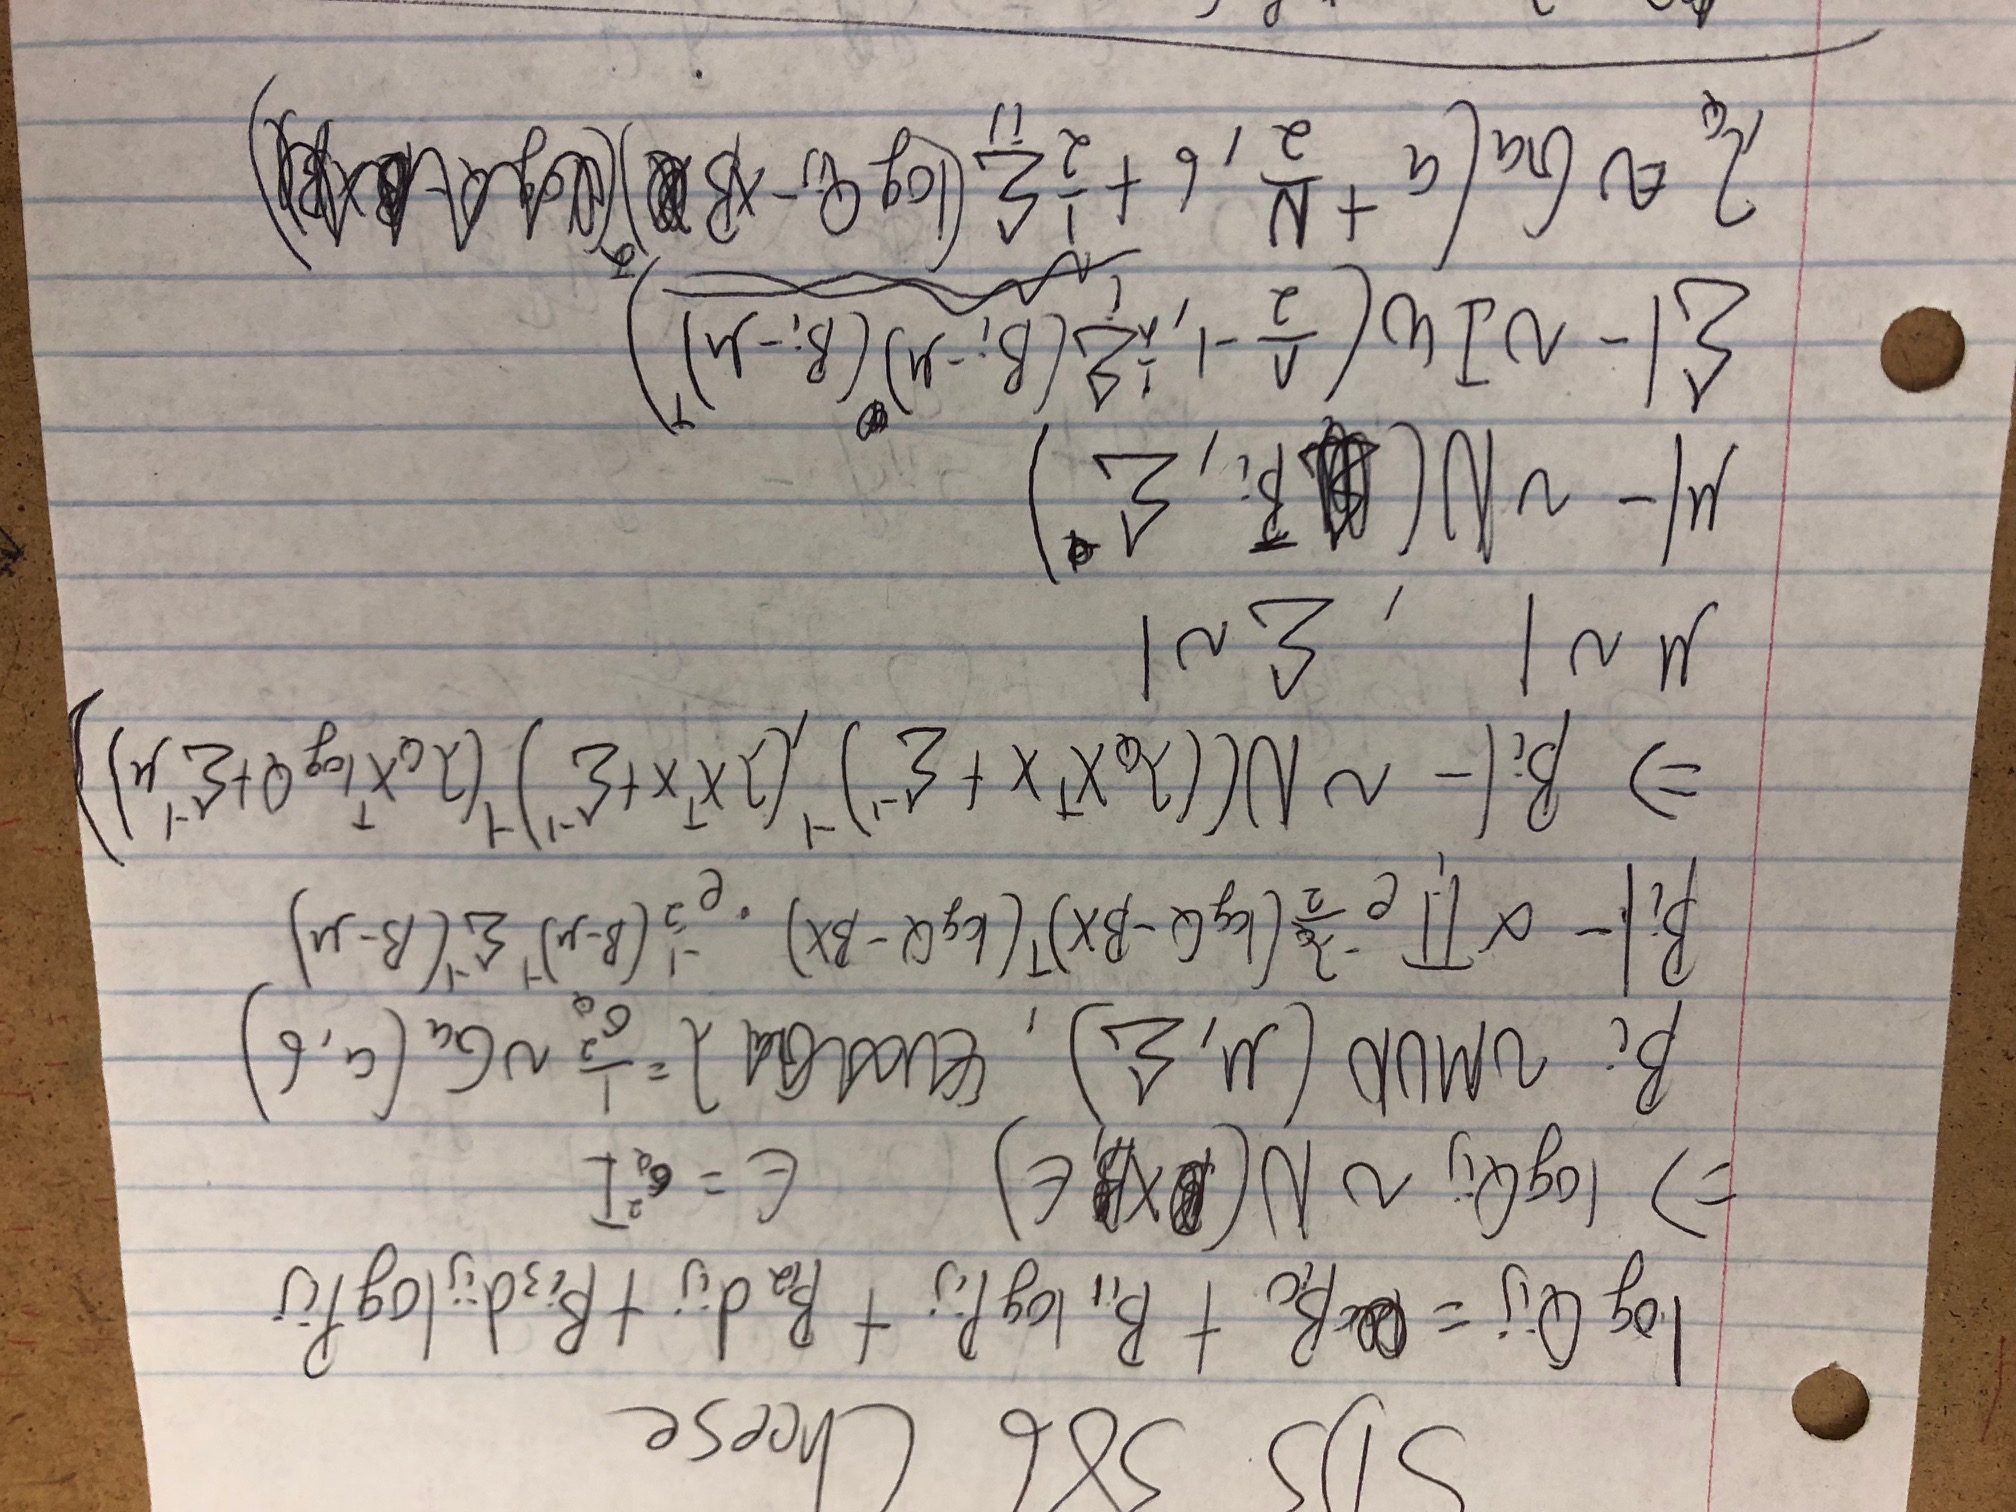 SDS 386 Cheese
log Qij = βi0 + βi1 log Pij + βi2 dij + βi3 dij log Pij
⇒ log Qij ~ N( XB, ε) ε = σQ² I
βi ~ MVN (μ, Σ), λ = 1/σQ² ~ Ga(a, b)
βi|– ∝ Πi e^(-λQ/2 (log Q - βX)^T (log Q - βX)) · e^(-1/2 (β-μ)^-1 Σ^-1 (β-μ))
⇒ βi|– ~ N((λQ X^T X + Σ^-1)^-1, (λ X^T X + Σ^-1)^-1 (λQ X^T log Q + Σ^-1 μ))
μ ~ 1 , Σ ~ 1
μ|– ~ N( β̄i, Σ )
Σ|– ~ IW( n/2 - 1, Σi (βi - μ)(βi - μ)^T )
λQ ~ Ga( a + N/2, b + 1/2 Σij (log Qij - XB )